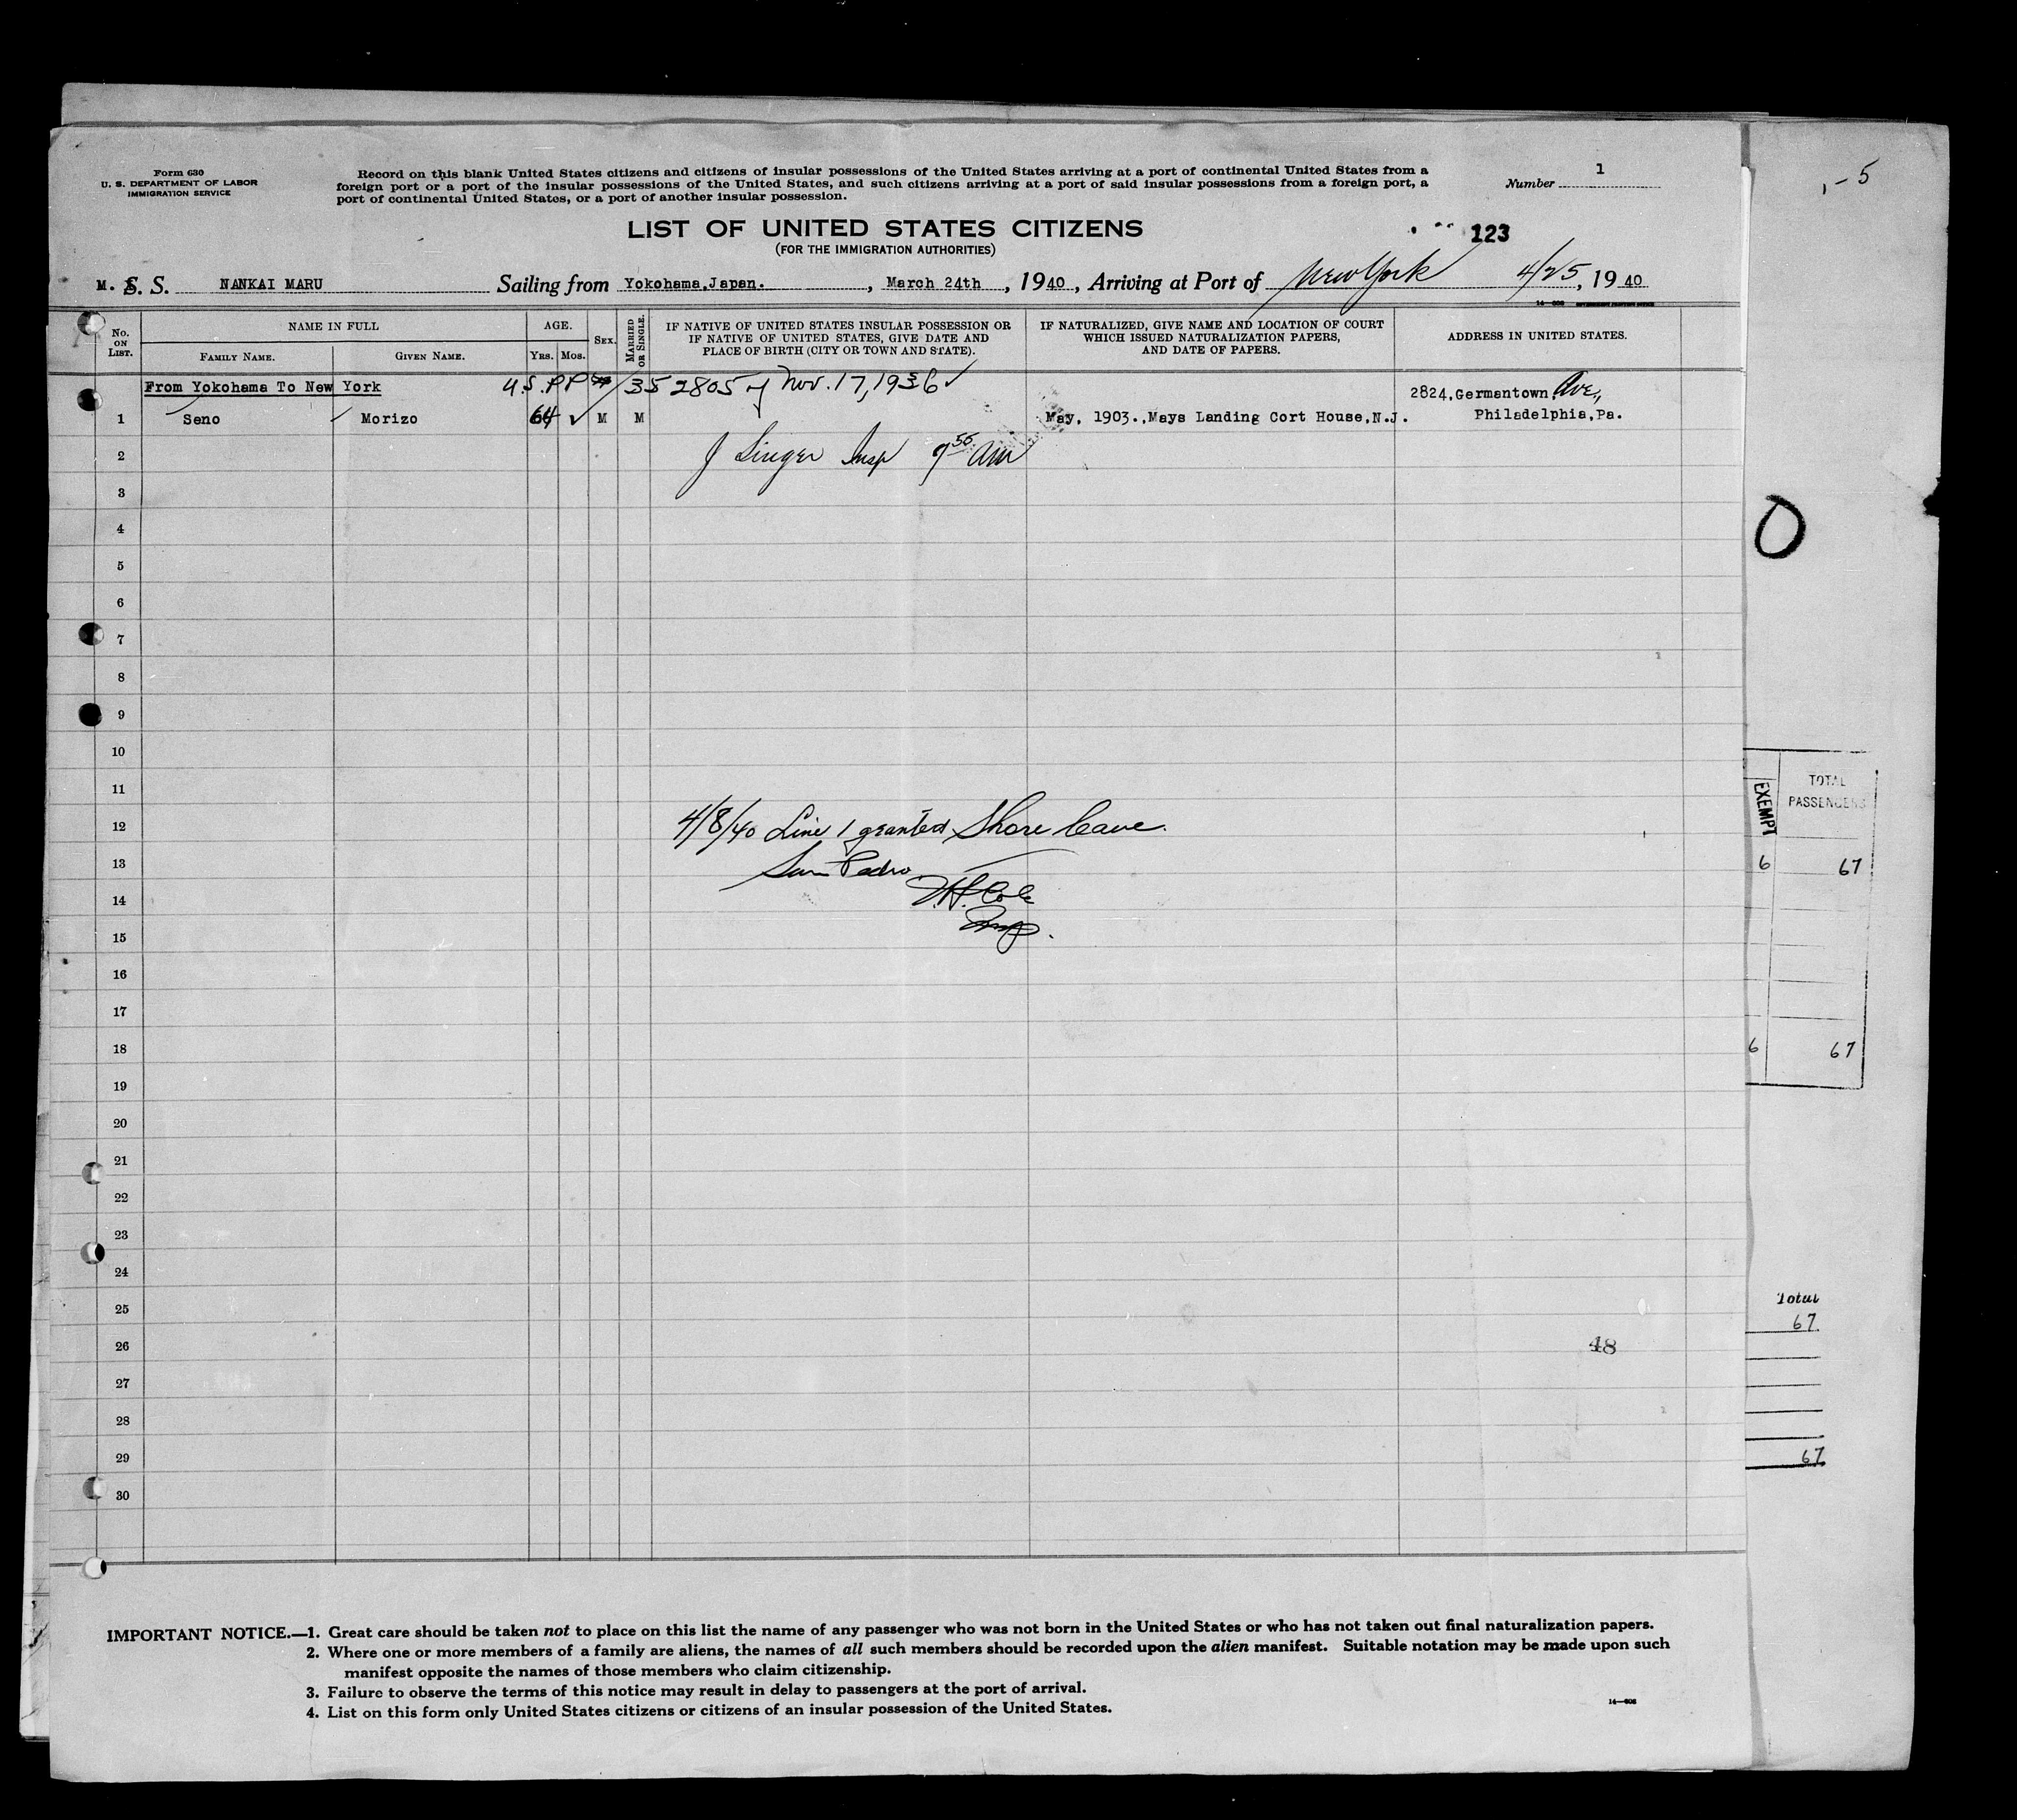 Form 630
U. S. DEPARTMENT OF LABOR
IMMIGRATION SERVICE
Record on this blank United States citizens and citizens of insular possessions of the United States arriving at a port of continental United States from a
foreign port or a port of the insular possessions of the United States, and such citizens arriving at a port of said insular possessions from a foreign port, a
port of continental United States, or a port of another insular possession.
Number 1
- 5
LIST OF UNITED STATES CITIZENS
(FOR THE IMMIGRATION AUTHORITIES)
123
M. S. S. NANKAI MARU Sailing from Yokohama,Japan. , March 24th , 1940 , Arriving at Port of New York 4/25, 1940
No. ON LIST.
NAME IN FULL
FAMILY NAME. GIVEN NAME.
AGE.
YRS. MOS.
SEX.
MARRIED OR SINGLE.
IF NATIVE OF UNITED STATES INSULAR POSSESSION OR
IF NATIVE OF UNITED STATES, GIVE DATE AND
PLACE OF BIRTH (CITY OR TOWN AND STATE).
IF NATURALIZED, GIVE NAME AND LOCATION OF COURT
WHICH ISSUED NATURALIZATION PAPERS,
AND DATE OF PAPERS.
ADDRESS IN UNITED STATES.
From Yokohama To New York U.S.PP 352805 of Nov. 17, 1936 2824,Germantown Ave.,
1 Seno Morizo 64 M M May, 1903.,Mays Landing Cort House,N.J. Philadelphia,Pa.
2 J Singer Insp 9 55 AM
3
4
5
6
7
8
9
10
11
12 4/8/40 Line 1 granted Shore leave.
13 San Pedro
14 Cole
15 Insp.
16
17
18
19
20
21
22
23
24
25
26 48
27
28
29
30
EXEMPT
TOTAL
PASSENGERS
6 67
6 67
Total
67
67
IMPORTANT NOTICE.—1. Great care should be taken not to place on this list the name of any passenger who was not born in the United States or who has not taken out final naturalization papers.
2. Where one or more members of a family are aliens, the names of all such members should be recorded upon the alien manifest. Suitable notation may be made upon such
manifest opposite the names of those members who claim citizenship.
3. Failure to observe the terms of this notice may result in delay to passengers at the port of arrival.
4. List on this form only United States citizens or citizens of an insular possession of the United States.